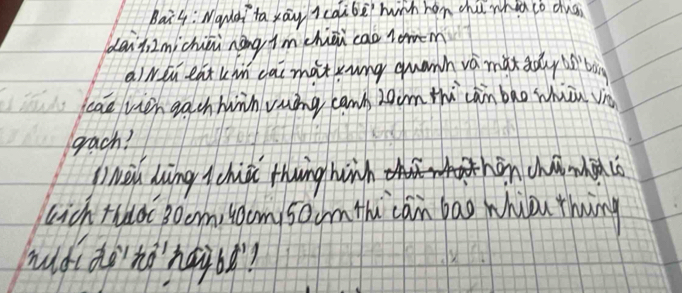 Bài 4: Người ta xây 1 cái bể hình hộp chữ nhật có chiều
dài 1,2m; chiều rộng 1m chiều cao 1
a) Nếu lát kín các mặt xung quanh và mặt đáy bể bằng
các viên gạch hình vuông cạnh 20cm thì cần bao nhiêu viên
gạch?
Nếu dùng 1 chiếc thùng hình hộp chữ nhật có
kích thước 30cm, 40cm, 50cm thì cần bao nhiêu thùng
nước để đổ đầy bể?